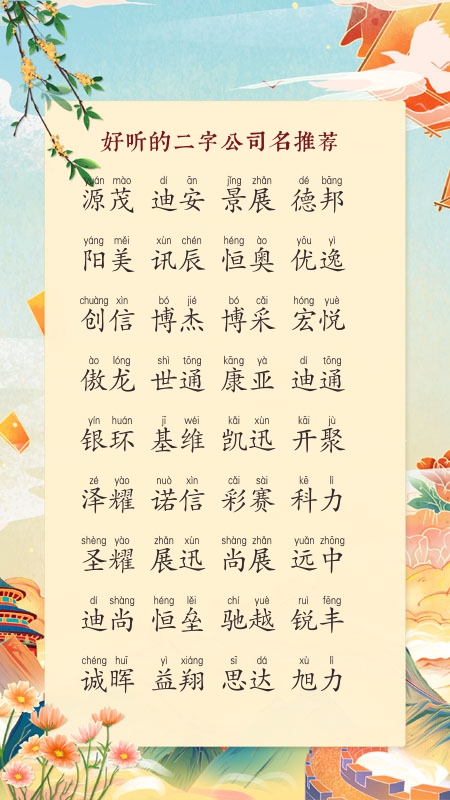 好听的二字公司名推荐
yuán mào dí ān jǐng zhǎn dé bāng
源茂 迪安 景展 德邦
yáng měi xùn chén héng ào yōu yì
阳美 讯辰 恒奥 优逸
chuàng xìn bó jié bó cǎi hóng yuè
创信 博杰 博采 宏悦
ào lóng shì tōng kāng yà dí tōng
傲龙 世通 康亚 迪通
yín huán jī wéi kǎi xùn kāi jù
银环 基维 凯迅 开聚
zé yào nuò xìn cǎi sài kē lì
泽耀 诺信 彩赛 科力
shèng yào zhǎn xùn shàng zhǎn yuǎn zhōng
圣耀 展迅 尚展 远中
dí shàng héng lěi chí yuè ruì fēng
迪尚 恒垒 驰越 锐丰
chéng huī yì xiáng sī dá xù lì
诚晖 益翔 思达 旭力